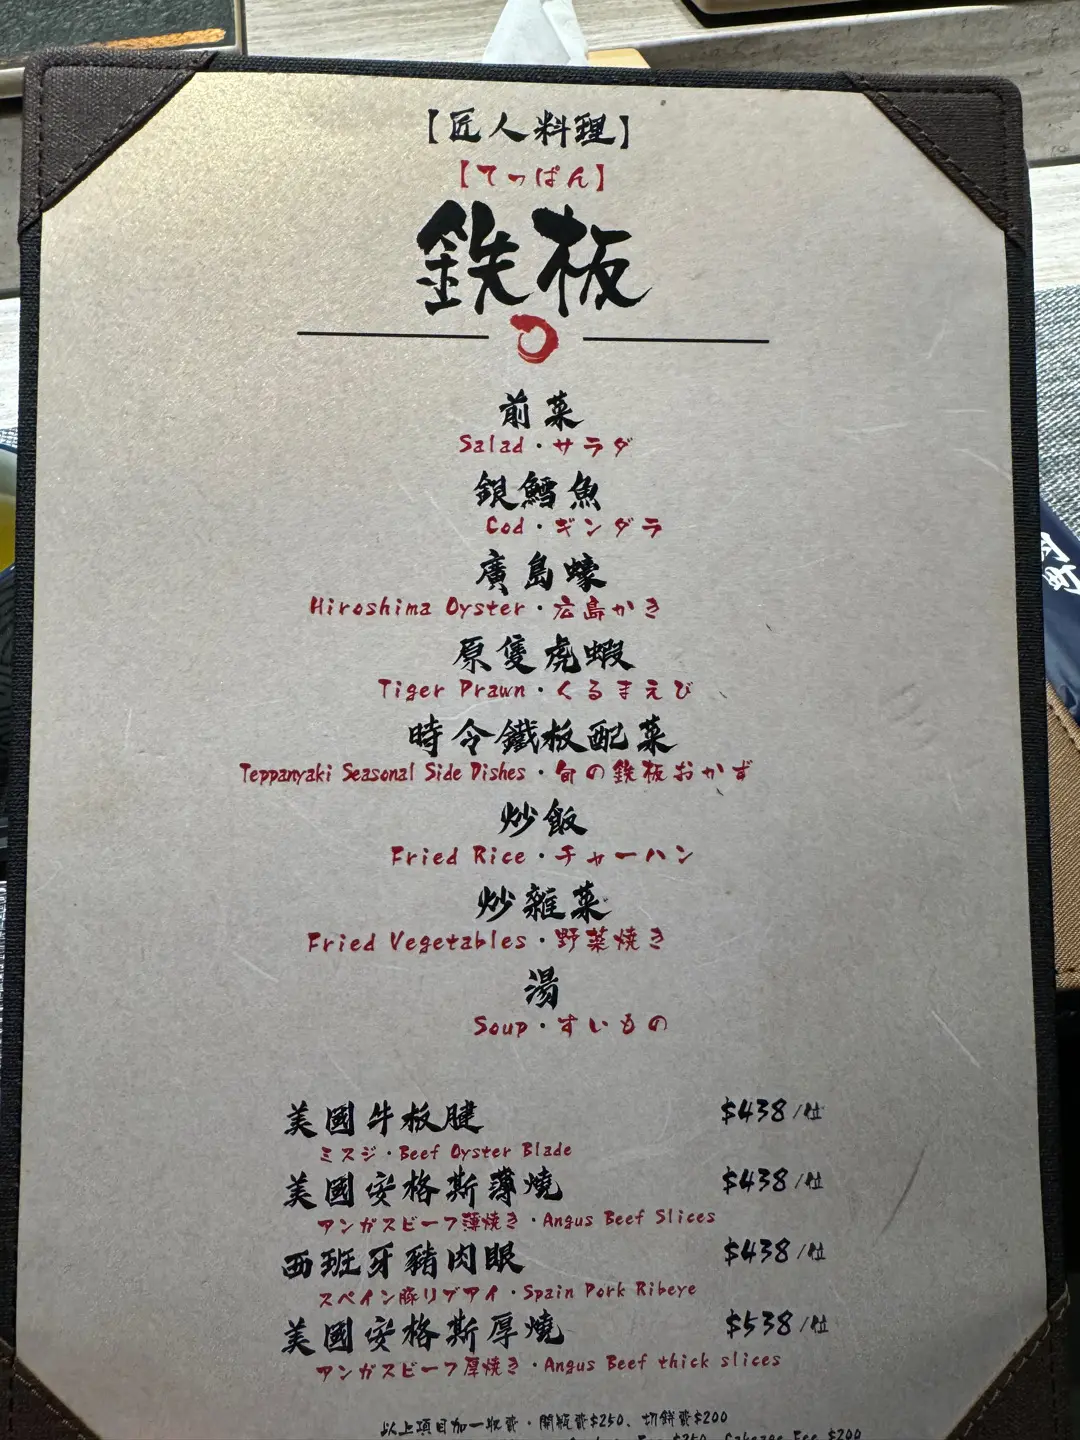 【匠人料理】
【てっぱん】
鉄板
前菜
Salad・サラダ
銀鱈魚
Cod・ギンダラ
廣島蠔
Hiroshima Oyster・広島かき
原隻虎蝦
Tiger Prawn・くるまえび
時令鐵板配菜
Teppanyaki Seasonal Side Dishes・旬の鉄板おかず
炒飯
Fried Rice・チャーハン
炒雜菜
Fried Vegetables・野菜焼き
湯
Soup・すいもの
美國牛板腱 $438/位
ミスジ・Beef Oyster Blade
美國安格斯薄燒 $438/位
アンガスビーフ薄焼き・Angus Beef Slices
西班牙豬肉眼 $438/位
スペイン豚リブアイ・Spain Pork Ribeye
美國安格斯厚燒 $538/位
アンガスビーフ厚焼き・Angus Beef thick slices
以上項目加一收費・開瓶費$250、切餅費$200
Fee $250、Cakeage Fee $200
町